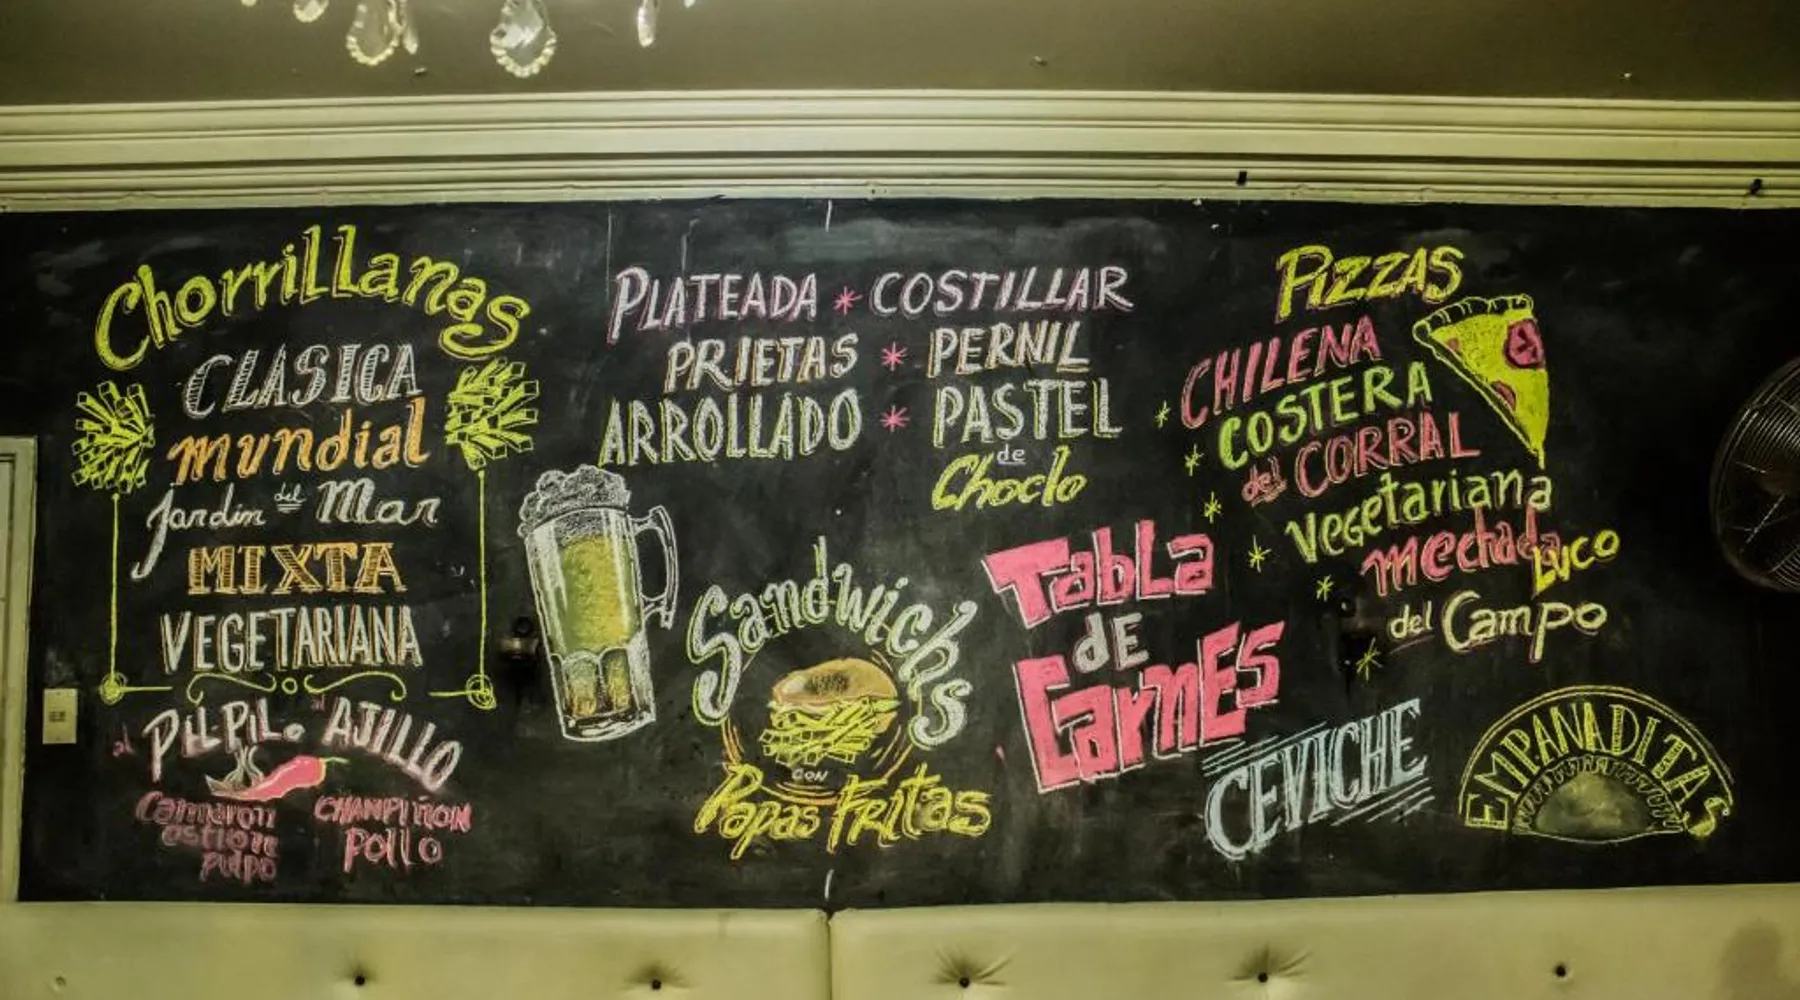 Chorrillanas
CLASICA
mundial
Jardin del Mar
MIXTA
VEGETARIANA
al PILPIL. al AJILLO
Camaron
ostion
pulpo
CHAMPIÑON
POLLO
PLATEADA * COSTILLAR
PRIETAS * PERNIL
ARROLLADO * PASTEL
de
Choclo
Sandwichs
CON
Papas Fritas
TabLa
dE
CarnEs
PIZZAS
CHILENA
* COSTERA
* del CORRAL
* Vegetariana
* mechada Luco
* del Campo
*
CEVICHE
EMPANADITAS